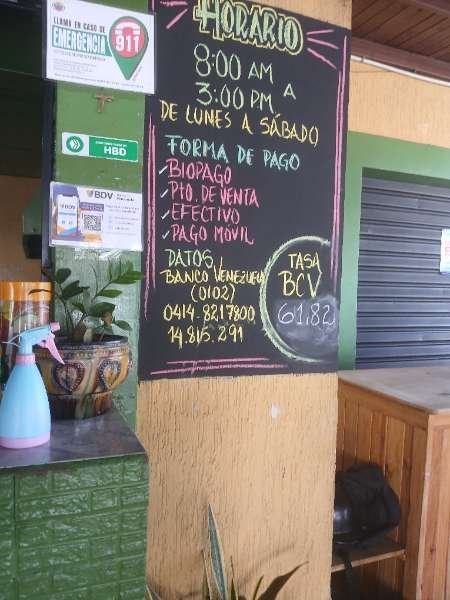 LLAMA EN CASO DE
EMERGENCIA
911
HBD
BDV
HORARIO
8:00 AM
A
3:00 PM
DE LUNES A SÁBADO
FORMA DE PAGO
✓BIOPAGO
✓PTO. DE VENTA
✓EFECTIVO
✓PAGO MOVIL
DATOS
BANCO VENEZUELA
(0102)
0414-8217800
14.815.291
TASA
BCV
61,82